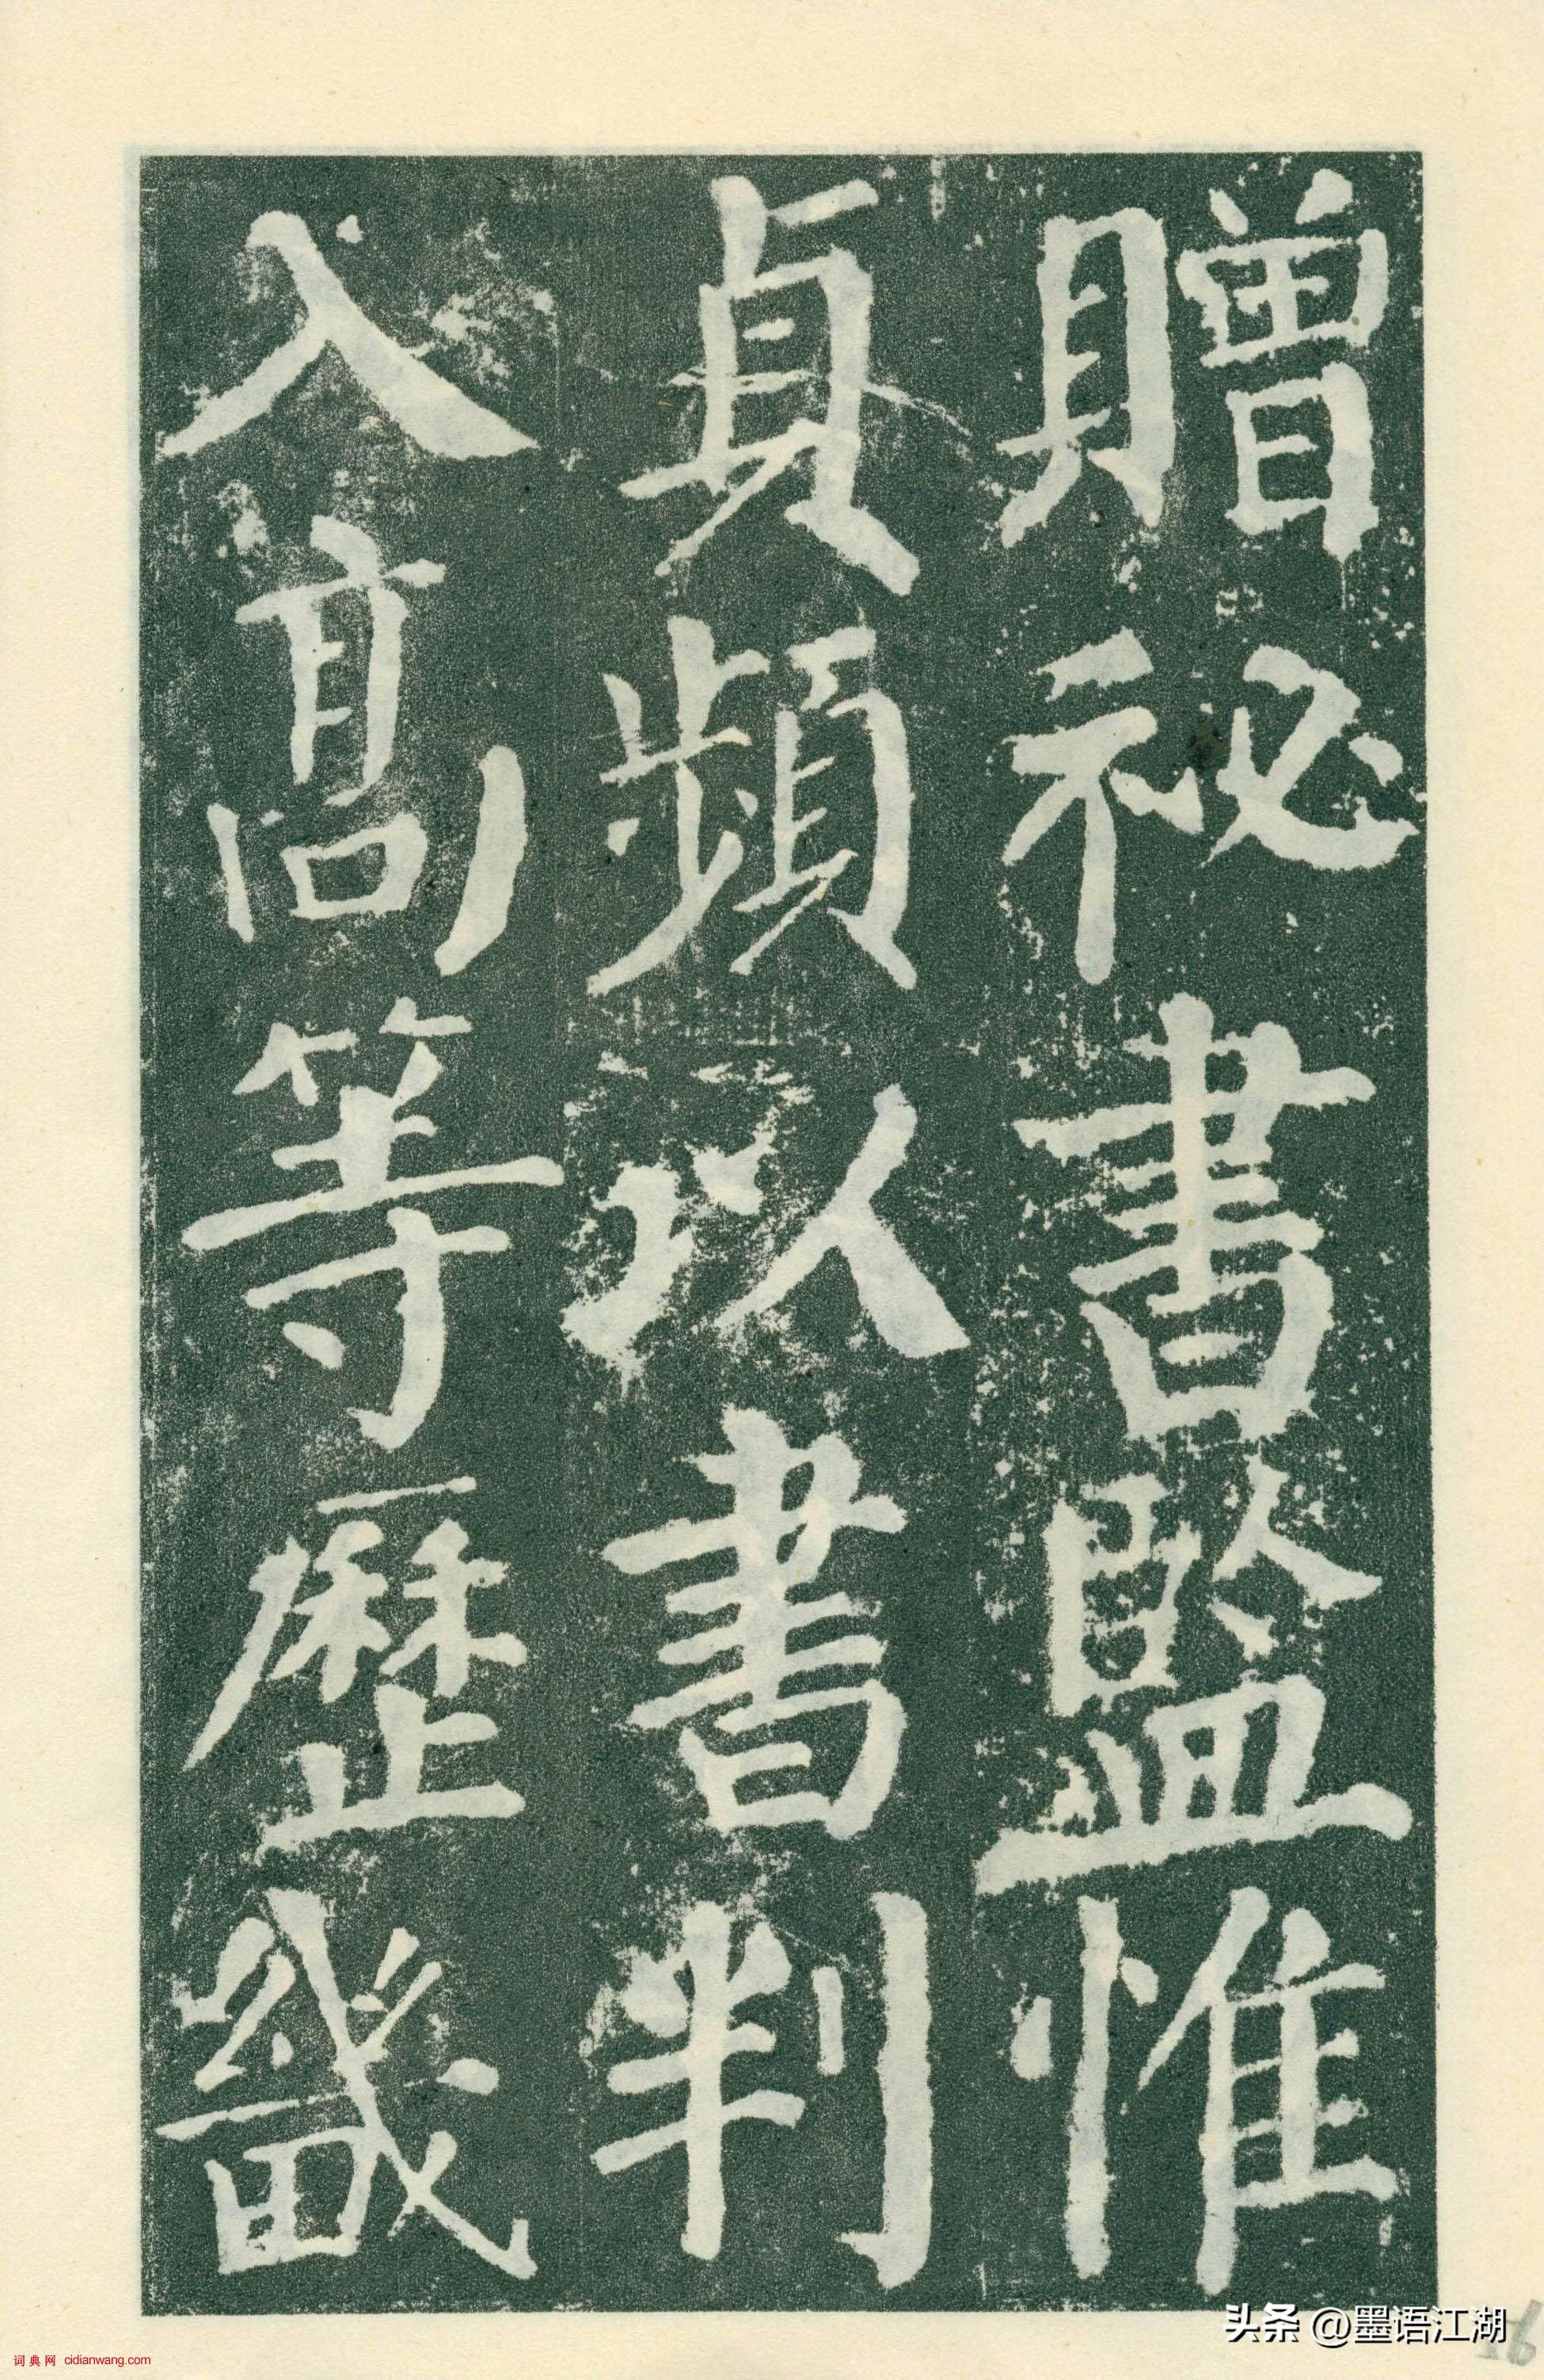 贈祕書監惟
貞頻以書判
入高等歷畿
头条 @墨语江湖
词典网 cidianwang.com